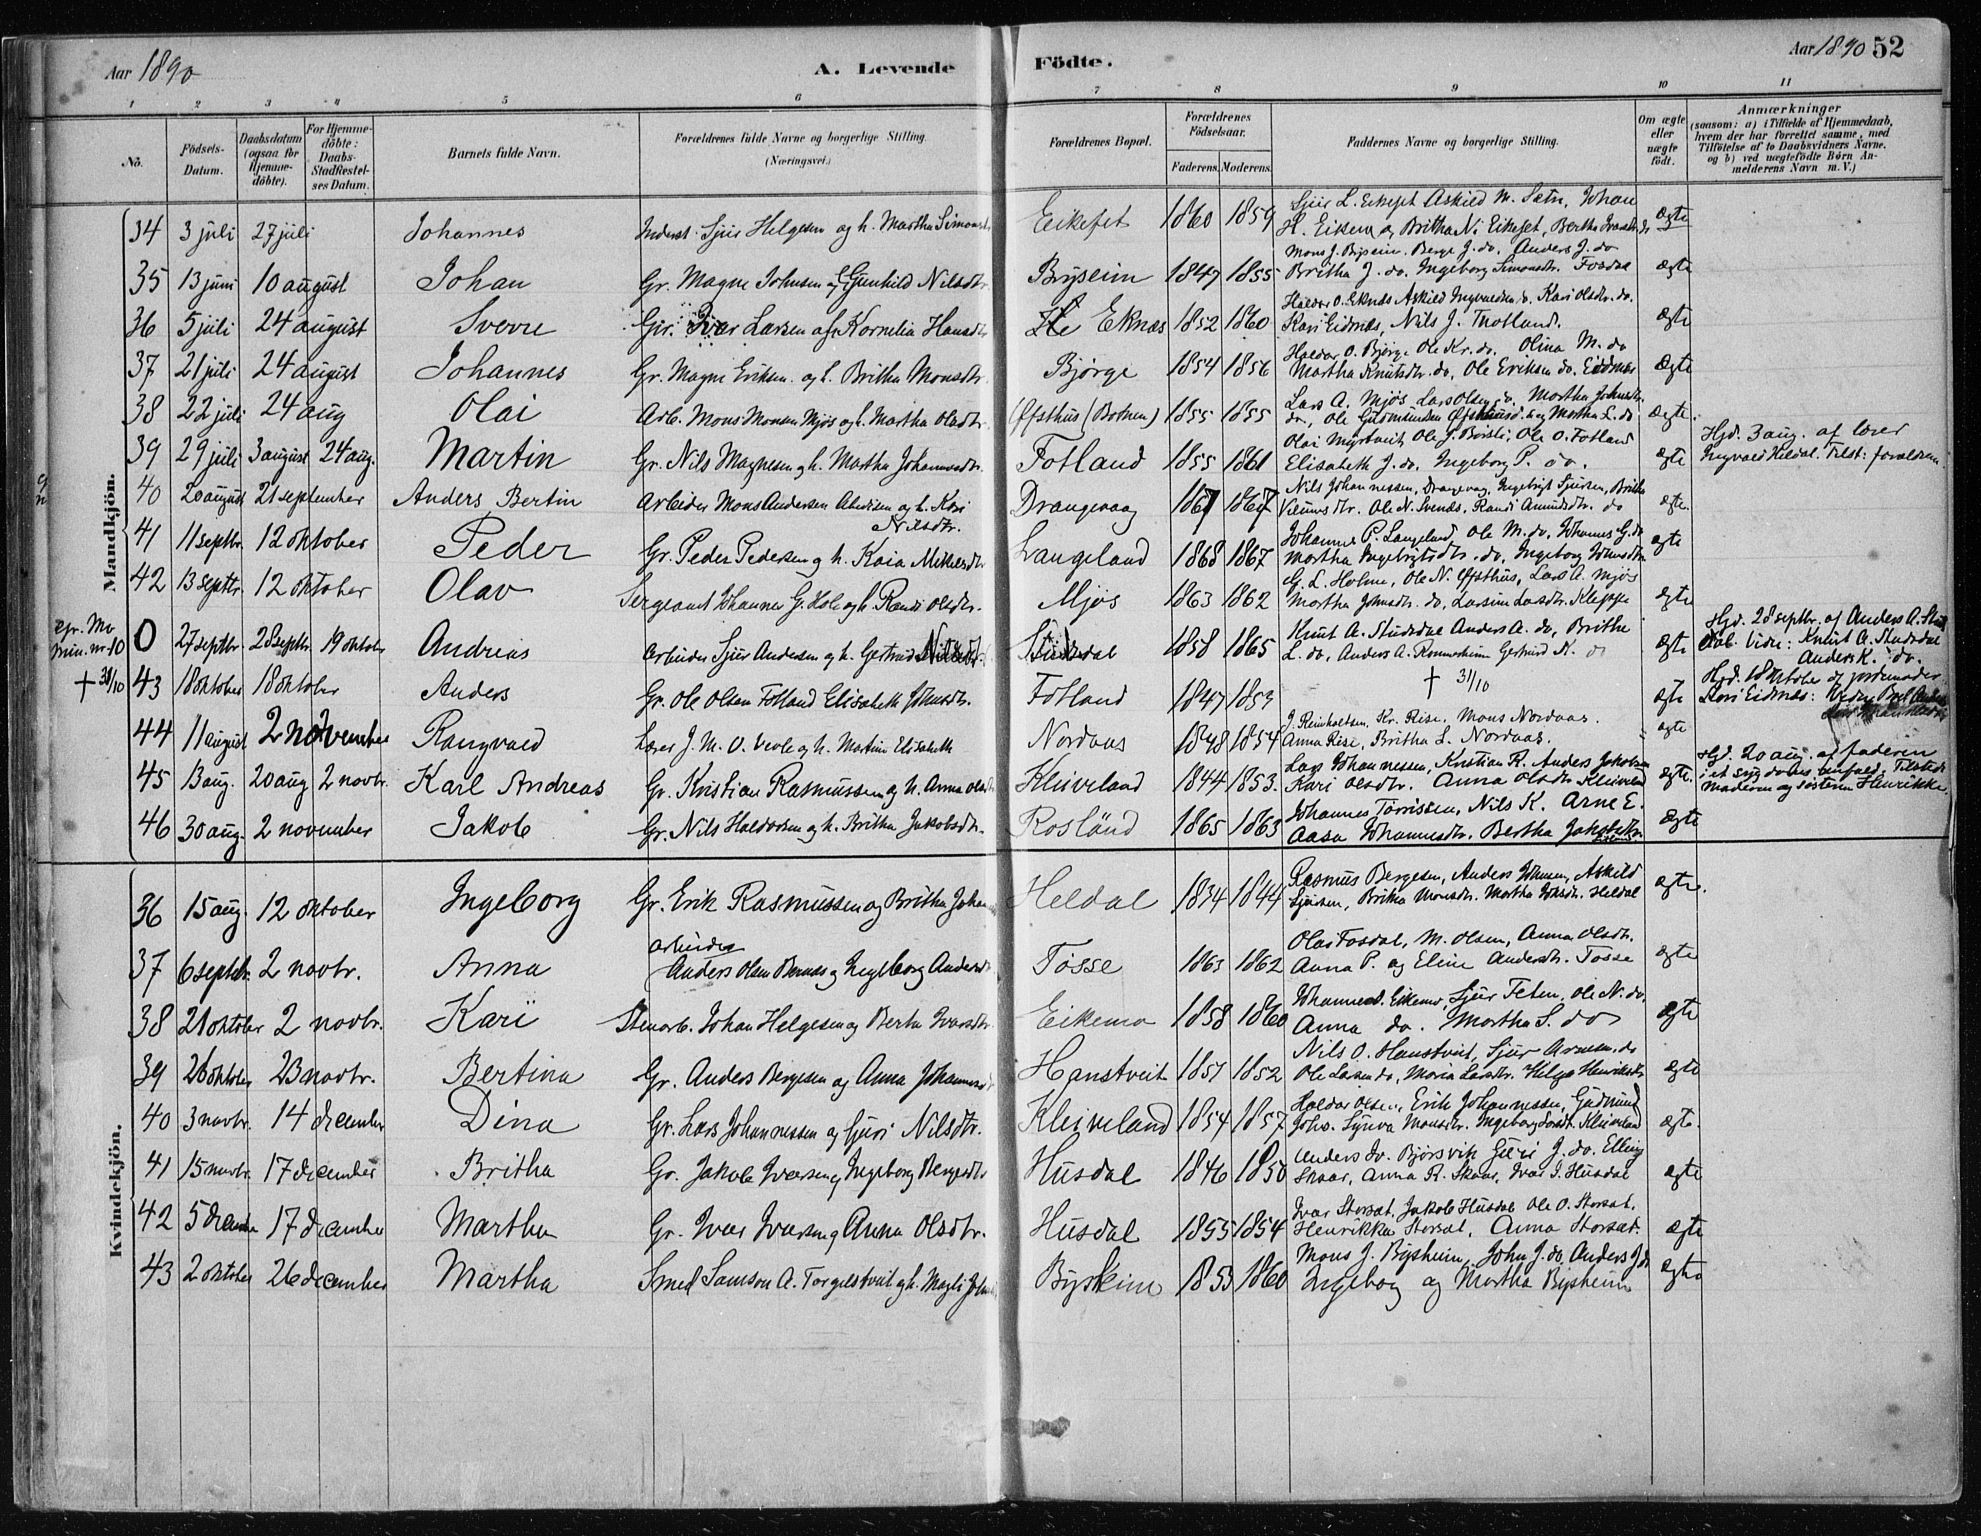 Aar 1890
A. Levende Födte.
Aar 1890 52
1 2 3 4 5 6 7 8 9 10 11
No. Födsels-Datum. Daabsdatum (ogsaa for Hjemme-döbte). For Hjemme-döbte: Daabs-Stadfæstel-ses Datum. Barnets fulde Navn. Forældrenes fulde Navne og borgerlige Stilling. (Næringsvei.) Forældrenes Bopæl. Forældrenes Födselsaar. Faderens. Moderens. Faddernes Navne og borgerlige Stilling. Om ægte eller uægte födt. Anmærkninger (saasom: a) i Tilfælde af Hjemmedaab, hvem der har forrettet samme, med Tilföielse af to Daabsvidners Navne. og b) ved uægtefödte Börn An-melderens Navn m. V.)
Mandkjön.
34 3 juli 27 juli Johannes Inderst Sjur Helgesen og h. Martha Simonsdtr Eikefet 1860 1859 Sjur L. Eikefet Askild M. Sætr, Johan
H. Eikemo og Britha N. Eikefet, Bertha Ivarsdtr do ægte
35 13 juni 10 august Johan Gr. Magne Johnsen og Gunhild Nilsdtr Byseim 1847 1855 Mons J. Byseim. Berge J. do. Anders J. do
Britha J. do. Ingeborg Simonsdtr. Fosdal ægte
36 5 juli 24 august Sverre Gr. Ivar Larsen og h. Kornelia Hansdtr Eknæs 1852 1860 Haldor O. Eknæs Askild Ingvaldsen do. Kari Olsdtr. do.
Kari Eidnæs, Nils J. Totland. ægte
37 21 juli 24 august Johannes Gr. Magne Eriksen og h. Britha Monsdtr. Bjørge 1854 1856 Haldor O. Bjørge Ole Kr. do. Olina M. do
Martha Knutsdtr. do, Ole Eriksen do. Eidnæs ægte
38 22 juli 24 aug Olai Arb. Mons Monsen Mjøs og h. Martha Olsdtr. Øfsthus (Botnen) 1855 1855 Lars A. Mjøs, Lars Olsen do. Martha Johnsdtr.
do, Ole Gudmundsen Øfsthus do og Martha L. do ægte.
39 29 juli 3 august 24 aug. Martin Gr. Nils Magnesen og h. Martha Johannesdtr. Fotland 1855 1861 Olai Myrtveit, Ole J. Børsti, Ole O. Fotland
Elisabeth J. do. Ingeborg P. do. ægte Hjd. 3 aug. af lærer
Ingvald Hildal. Tilst: forældrene
40 20 august 21 september Anders Bertin Arbeider Mons Andersen og h. Kari
Nilsdtr. Drangevaag 1867 1867 Nils Johannessen, Drangevag, Ingebrigt Sjursen, Britha
Ole N. Svenæs. Randi Amundsdtr. do ægte.
41 11 septbr. 12 oktober Peder Gr. Peder Pedersen og h. Kaia Mikkelsdtr Langeland 1868 1867 Johannes P. Langeland, Ole M. do, Johannes G. do
Martha Ingebrigtsdtr. do. Ingeborg Johnsdtr. ægte
42 13 septbr. 12 oktober Olav Sergeant Johannes G. Hole og h. Randi Olsdtr. Mjøs 1863 1862 G. L. Holme, Ole N. Øfsthus, Lars A. Mjøs
Martha Johnsdtr. do, Larsine Larsdtr. Kleppe ægte
Gr. Mo
Min. nr 10 0 27 septbr. 28 septbr. 19 oktober Andreas Arbeider Sjur Andersen og h. Gertrud Nilsdtr. Studsdal 1858 1865 Knut A. Studsdal Anders A. do, Britha
L. do, Anders A. Rommerheim Gertrud N. do ægte Hjd. 28 septbr. af Anders A. Stud
dal. Vidn: Knut A. Studsdal
Anders K. do.
† 31/10 43 18 oktober 18 oktober Anders Gr. Ole Olsen Fotland Elisabeth Johnsdtr. Fotland 1847 1859 † 31/10 ægte Hjd. 18 oktober af jordemoder
Kari Eidnæs:
44 11 august 2 november Rangvald Lærer J. M. O. Veole og h. Martine Elisabeth Nordaas 1848 1854 J. Reinholtsen, Kr. Rise, Mons Nordaas.
Anna Rise, Britha L. Nordaas. ægte
45 13 aug. 20 aug 2 novbr. Karl Andreas Gr. Kristian Rasmussen og h. Anna Olsdtr Kleiveland 1844 1853. Lars Johannessen, Kristian R. Anders Jakobsen
Kari Olsdtr. Anna Olsdtr Kleiveland ægte. Hjd. 20 aug. af faderen
i et sygdoms tilfald. Tilstede
moderen og søsteren Henrikke.
46 30 aug. 2 november Jakob Gr. Nils Haldorsen og h. Britha Jakobsdtr. Rosland 1865 1863 Johannes Tørrissen, Nils K. Arne E.
Aasa Johannesdtr. Bertha Jakobsdtr. ægte
Kvindekjön.
36 15 aug. 12 oktober Ingeborg Gr. Erik Rasmussen og Britha Johan Heldal 1834 1844 Rasmus Bergesen, Anders Johnsen, Askild
Sjursen, Britha Monsdtr. Martha Johsdtr. Heldal ægte.
37 6 septbr. 2 novbr. Anna arbeider
Anders Olsen Bernæs og Ingeborg Andersdtr Tøsse 1863 1862 Olai Fosdal, M. Olsen, Anna Olsdtr.
Anna P. og Eline Andersdtr. Tøsse ægte
38 21 oktober 2 novbr. Kari Stenarb. Johan Helgesen og Bertha Ivarsdtr. Eikemo 1858 1860 Johannes Eikemo, Sjur Feten, Ole N. do.
Anna do. Martha S. do ægte
39 26 oktober 23 novbr. Bertina Gr. Anders Bergesen og Anna Johannesdtr Hanstveit 1851 1852 Nils O. Hanstveit, Sjur Arnesen do
Ole Larsen do, Maria Larsdtr. Helga Henriksdtr ægte
40 3 novbr. 14 december Dina Gr. Lars Johannessen og Guri Nilsdtr. Kleiveland 1854 1857 Haldor Olsen, Erik Johannessen, Gudmund
Johs. Synva Monsdtr. Ingeborg Larsdt. Kleiveland ægte.
41 15 novbr. 17 december Britha Gr. Jakob Iversen og Ingeborg Bergesdtr Husdal 1846 1850 Anders do. Bjørsvik Guri J. do. Elling
Skaar, Anna R. Skaar, Ivar I. Husdal ægte
42 5 december 17 december Martha Gr. Ivar Ivarsen og Anna Olsdtr. Husdal 1855 1854 Ivar Storsæt, Jakob Husdal Ole O. Storsæt.
Henrikka Storsæt, Anna Storsæt. ægte
43 2 oktober 26 december Martha Smed Samson A. Torgilstveit og h. Magli John Byseim 1853 1860 Mons J. Bysheim, John J. do, Anders J. do
Ingeborg og Martha Bysheim ægte